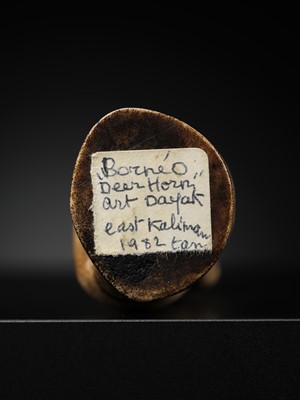 „Bornéo"
Deer Horn,
art Dayak
east Kaliman
1982 tan